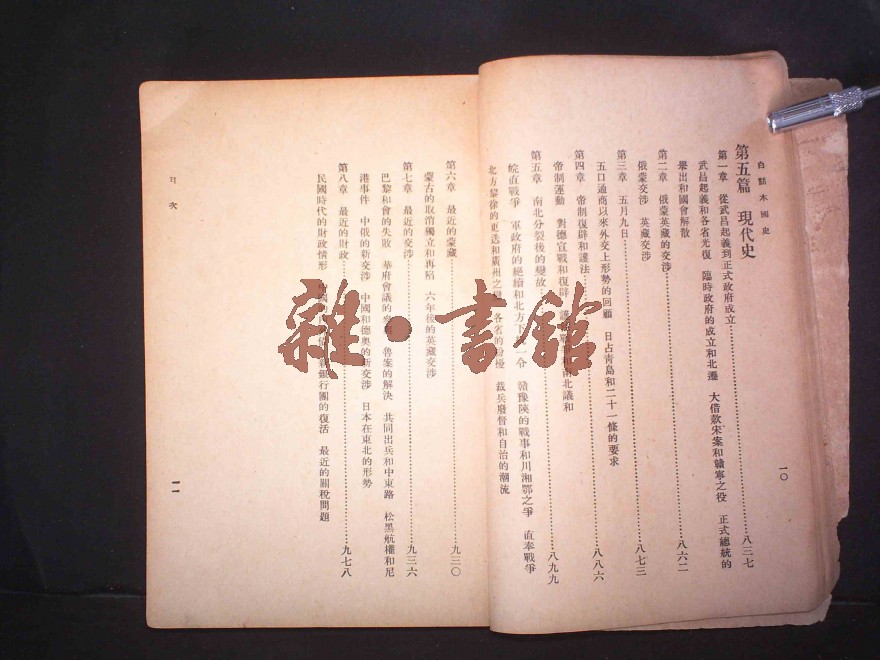 白話本國史
第五篇 現代史
第一章 從武昌起義到正式政府成立……八三七
武昌起義和各省光復 臨時政府的成立和北遷 大借款宋案和贛寧之役 正式總統的
舉出和國會解散
第二章 俄蒙英藏的交涉……八六二
俄蒙交涉 英藏交涉
第三章 五月九日……八七三
五口通商以來外交上形勢的回顧 日占青島和二十一條的要求
第四章 帝制復辟和護法……八八六
帝制運動 對德宣戰和復辟 護法戰 南北議和
第五章 南北分裂後的變故……八九九
皖直戰爭 軍政府的絕續和北方下 一令 贛豫陝的戰事和川湘鄂之爭 直奉戰爭
北方黎徐的更迭和廣州之變 各省的紛擾 裁兵廢督和自治的潮流
一〇
第六章 最近的蒙藏……九三〇
蒙古的取消獨立和再陷 六年後的英藏交涉
第七章 最近的交涉……九三六
巴黎和會的失敗 華府會議的參 魯案的解決 共同出兵和中東路 松黑航權和尼
港事件 中俄的新交涉 中國和德奧的新交涉 日本在東北的形勢
第八章 最近的財政……九七八
民國時代的財政情形 中國 新銀行團的復活 最近的關稅問題
目次
一一
雜·書館